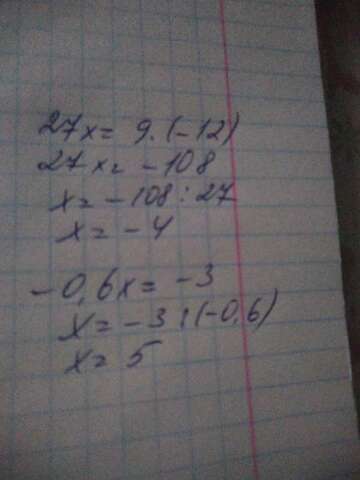 27x = 9 · (-12)
27x = -108
x = -108 : 27
x = -4
-0,6x = -3
x = -3 : (-0,6)
x = 5